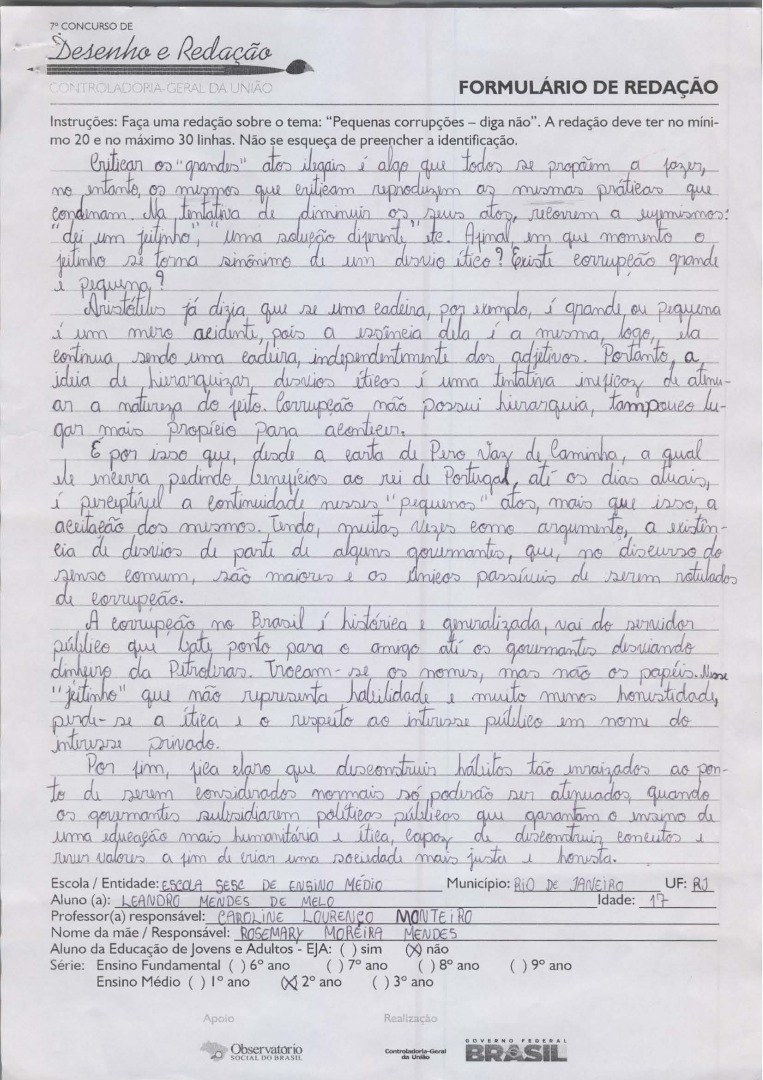 7º CONCURSO DE
Desenho e Redação
CONTROLADORIA-GERAL DA UNIÃO
FORMULÁRIO DE REDAÇÃO
Instruções: Faça uma redação sobre o tema: “Pequenas corrupções – diga não”. A redação deve ter no míni-
mo 20 e no máximo 30 linhas. Não se esqueça de preencher a identificação.
Criticar os "grandes" atos ilegais é algo que todos se propõem a fazer,
no entanto, os mesmos que criticam reproduzem as mesmas práticas que
condenam. Na tentativa de diminuir os seus atos, recorrem a eufemismos:
"dei um jeitinho", "uma solução diferente" etc. Afinal em que momento o
jeitinho se torna sinônimo de um desvio ético? Existe corrupção grande
e pequena?
Aristóteles já dizia que se uma cadeira, por exemplo, é grande ou pequena
é um mero acidente, pois a essência dela é a mesma, logo, ela
continua sendo uma cadeira, independentemente dos adjetivos. Portanto, a
ideia de hierarquizar desvios éticos é uma tentativa ineficaz de atenu-
ar a natureza do feito. Corrupção não possui hierarquia, tampouco lu-
gar mais propício para acontecer.
É por isso que, desde a carta de Pero Vaz de Caminha, a qual
ele encerra pedindo benefícios ao rei de Portugal, até os dias atuais,
é perceptível a continuidade nesses "pequenos" atos, mais que isso, a
aceitação dos mesmos. Tendo, muitas vezes como argumento, a existên-
cia de desvios de parte de alguns governantes, que, no discurso do
senso comum, são maiores e os únicos passíveis de serem rotulados
de corrupção.
A corrupção no Brasil é histórica e generalizada, vai do servidor
público que bate ponto para o amigo até os governantes desviando
dinheiro da Petrobras. Trocam-se os nomes, mas não os papéis. Nesse
"jeitinho" que não representa habilidade e muito menos honestidade,
perde-se a ética e o respeito ao interesse público em nome do
interesse privado.
Por fim, fica claro que desconstruir hábitos tão enraizados ao pon-
to de serem considerados normais só poderão ser atenuados, quando
os governantes subsidiarem políticas públicas que garantam o ensino de
uma educação mais humanitária e ética, capaz de desconstruir conceitos e
rever valores a fim de criar uma sociedade mais justa e honesta.
Escola / Entidade: ESCOLA SESC DE ENSINO MÉDIO Município: RIO DE JANEIRO UF: RJ
Aluno (a): LEANDRO MENDES DE MELO Idade: 17
Professor(a) responsável: CAROLINE LOURENÇO MONTEIRO
Nome da mãe / Responsável: ROSEMARY MOREIRA MENDES
Aluno da Educação de Jovens e Adultos - EJA: ( ) sim (X) não
Série: Ensino Fundamental ( ) 6º ano ( ) 7º ano ( ) 8º ano ( ) 9º ano
Ensino Médio ( ) 1º ano (X) 2º ano ( ) 3º ano
Apoio Realização
Observatório
SOCIAL DO BRASIL
Controladoria-Geral
da União
GOVERNO FEDERAL
BRASIL